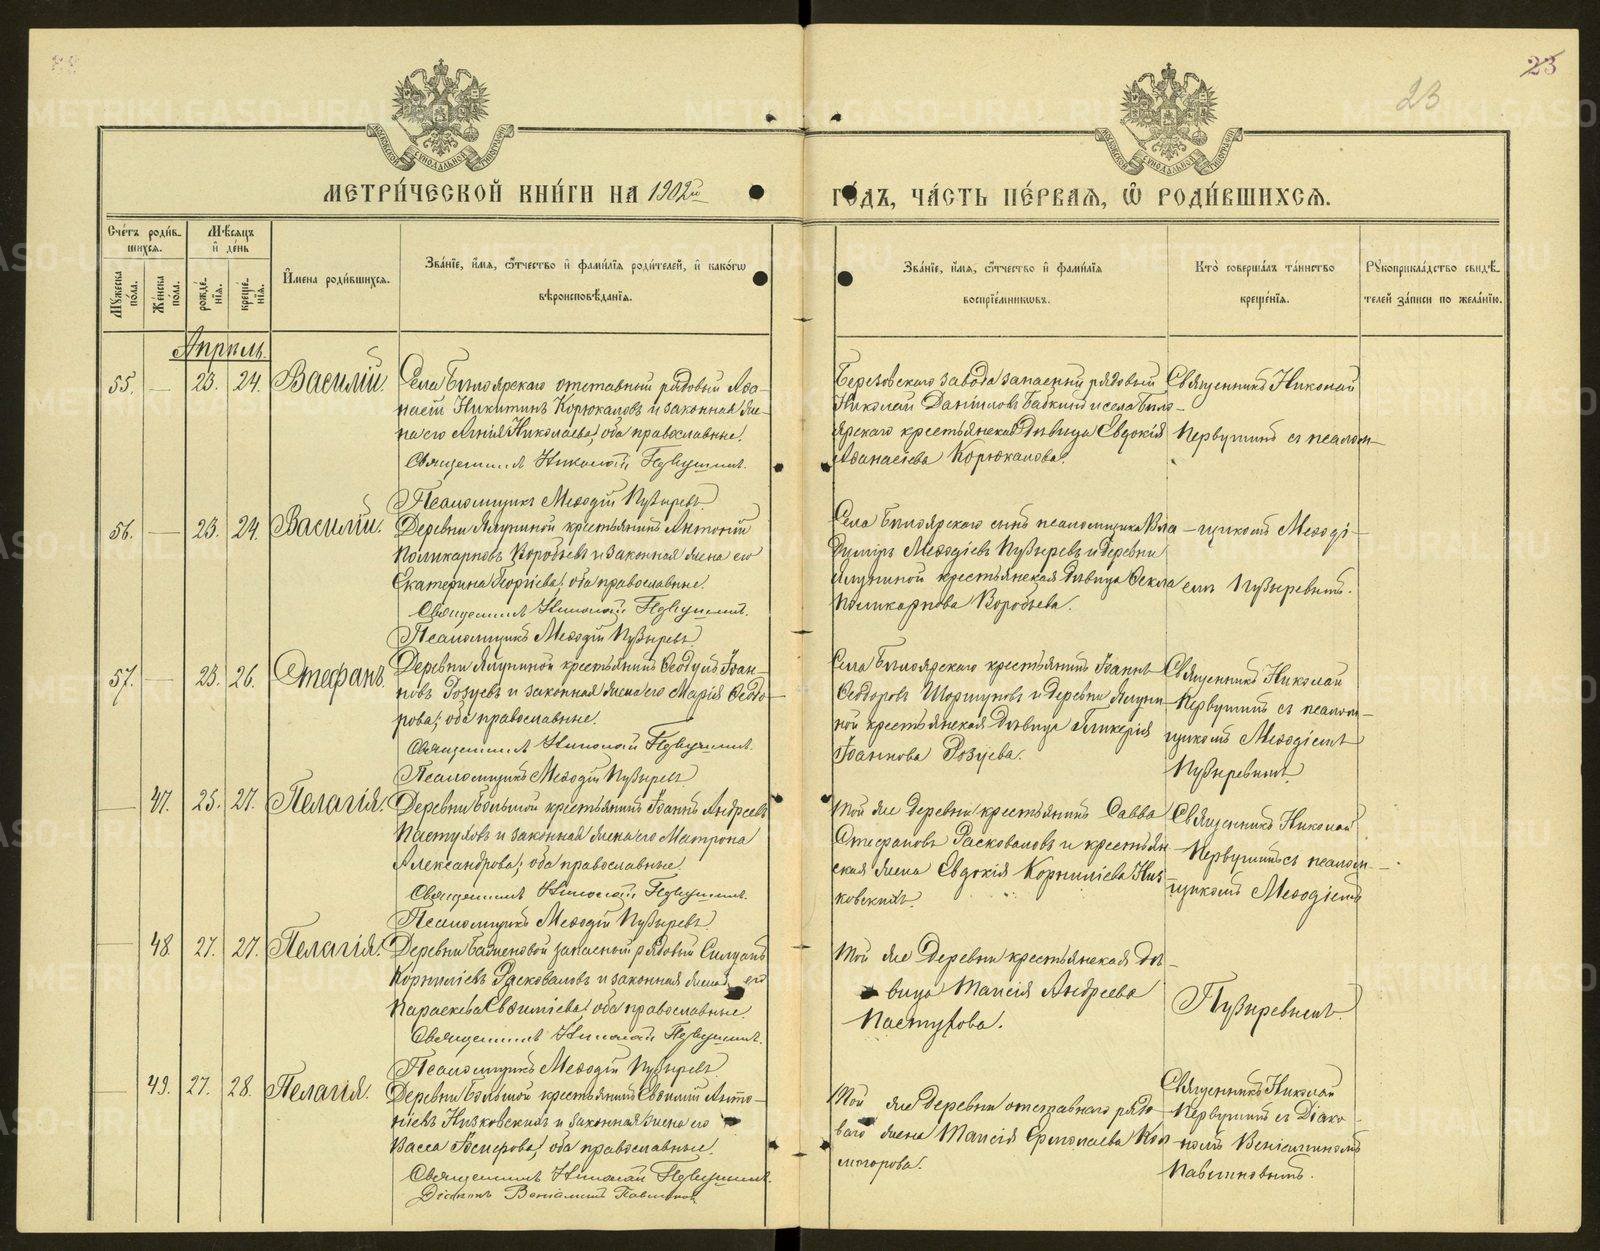 23
23
МЕТРИ́ЧЕСКОЙ КНИ́ГИ НА 1902й ГО́ДЪ, ЧА́СТЬ ПЕ́РВАЯ, Ѽ РОДИ́ВШИХСЯ.
Сче́тъ роди́вшихся.
Му́жеска по́ла.
Же́нска по́ла.
Мѣ́сяцъ и҆ де́нь
рожде́нїя.
креще́нїя.
И҆мена роди́вшихся.
Зва́нїе, и҆́мя, ѻ҆́тчество и҆ фами́лїя роди́телей, и҆ како́гѡ
вѣроисповѣ́данїя.
Зва́нїе, и҆́мя, ѻ҆́тчество и҆ фами́лїя
воспрїе́мниковъ.
Кто̀ соверша́лъ та́инство
креще́нїя.
Рꙋкоприкла́дство свидѣ́телей за́писи по жела́нїю.
Апрѣль.
55. — 23. 24. Василій.
Села Бѣлоярскаго отставный рядовый Аѳа-
насій Никитинъ Корюкаловъ и законная же-
на его Агнія Николаева, оба православные.
Священникъ Николай Первушинъ.
Псаломщикъ Меѳодій Пузыревъ
Березовскаго завода запасный рядовый
Николай Даніиловъ Бабкинъ и села Бѣло-
ярскаго крестьянская дѣвица Евдокія
Аѳанасіева Корюкалова.
Священникъ Николай
Первушинъ съ псалом-
56. — 23. 24. Василій.
крестьянинъ Антоній
Поликарповъ Воробьевъ и законная жена его
Екатерина Георгіева, оба православные.
Священникъ Николай Первушинъ.
Псаломщикъ Меѳодій Пузыревъ
Села Бѣлоярскаго сынъ псаломщика Вла-
димiръ Меѳодіевъ Пузыревъ и деревни
крестьянская дѣвица Ѳекла
Поликарпова Воробьева.
щикомъ Меѳоді-
емъ Пузыревымъ.
57. — 23. 26. Стефанъ.
крестьянинъ Ѳеодулъ Іоан-
новъ Розуевъ и законная жена его Марія Ѳеодо-
рова, оба православные.
Священникъ Николай Первушинъ.
Псаломщикъ Меѳодій Пузыревъ
Села Бѣлоярскаго крестьянинъ Іоаннъ
Ѳеодоровъ Шоршуновъ и деревни
ной крестьянская дѣвица Гликерія
Іоаннова Розуева.
Священникъ Николай
Первушинъ съ псалом-
щикомъ Меѳодіемъ
Пузыревымъ
— 47. 25. 27. Пелагія.
Деревни Большой крестьянинъ Іоаннъ Андреевъ
Пастуховъ и законная жена его Матрона
Александрова, оба православные.
Священникъ Николай Первушинъ.
Псаломщикъ Меѳодій Пузыревъ
Той же деревни крестьянинъ Савва
Стефановъ Расковаловъ и крестьян-
ская жена Евдокія Корниліева Низ-
ковскихъ.
Священникъ Николай
Первушинъ съ псалом-
щикомъ Меѳодіемъ
— 48. 27. 27. Пелагія.
Деревни Баженовой запасной рядовый Силуанъ
Корниліевъ Расковаловъ и законная жена его
Параскева Василіева, оба православные.
Священникъ Николай Первушинъ.
Псаломщикъ Меѳодій Пузыревъ.
Той же деревни крестьянская дѣ-
вица Таисія Андреева
Пастухова.
Пузыревымъ.
— 49. 27. 28. Пелагія.
Деревни Большой крестьянинъ Василій Анто-
ніевъ Низковскихъ и законная жена его
Васса оба православные.
Священникъ Николай Первушинъ.
Діаконъ Веніаминъ Павлиновъ
Той же деревни отставнаго рядо-
ваго жена Таисія Ермолаева Кол-
могорова.
Священникъ Николай
Первушинъ съ Діако-
номъ Веніаминомъ
Павлиновымъ.